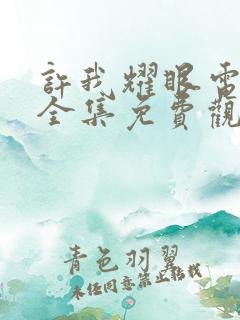 許我耀眼電
全集免費觀
青色羽翼
未經同意禁止轉載